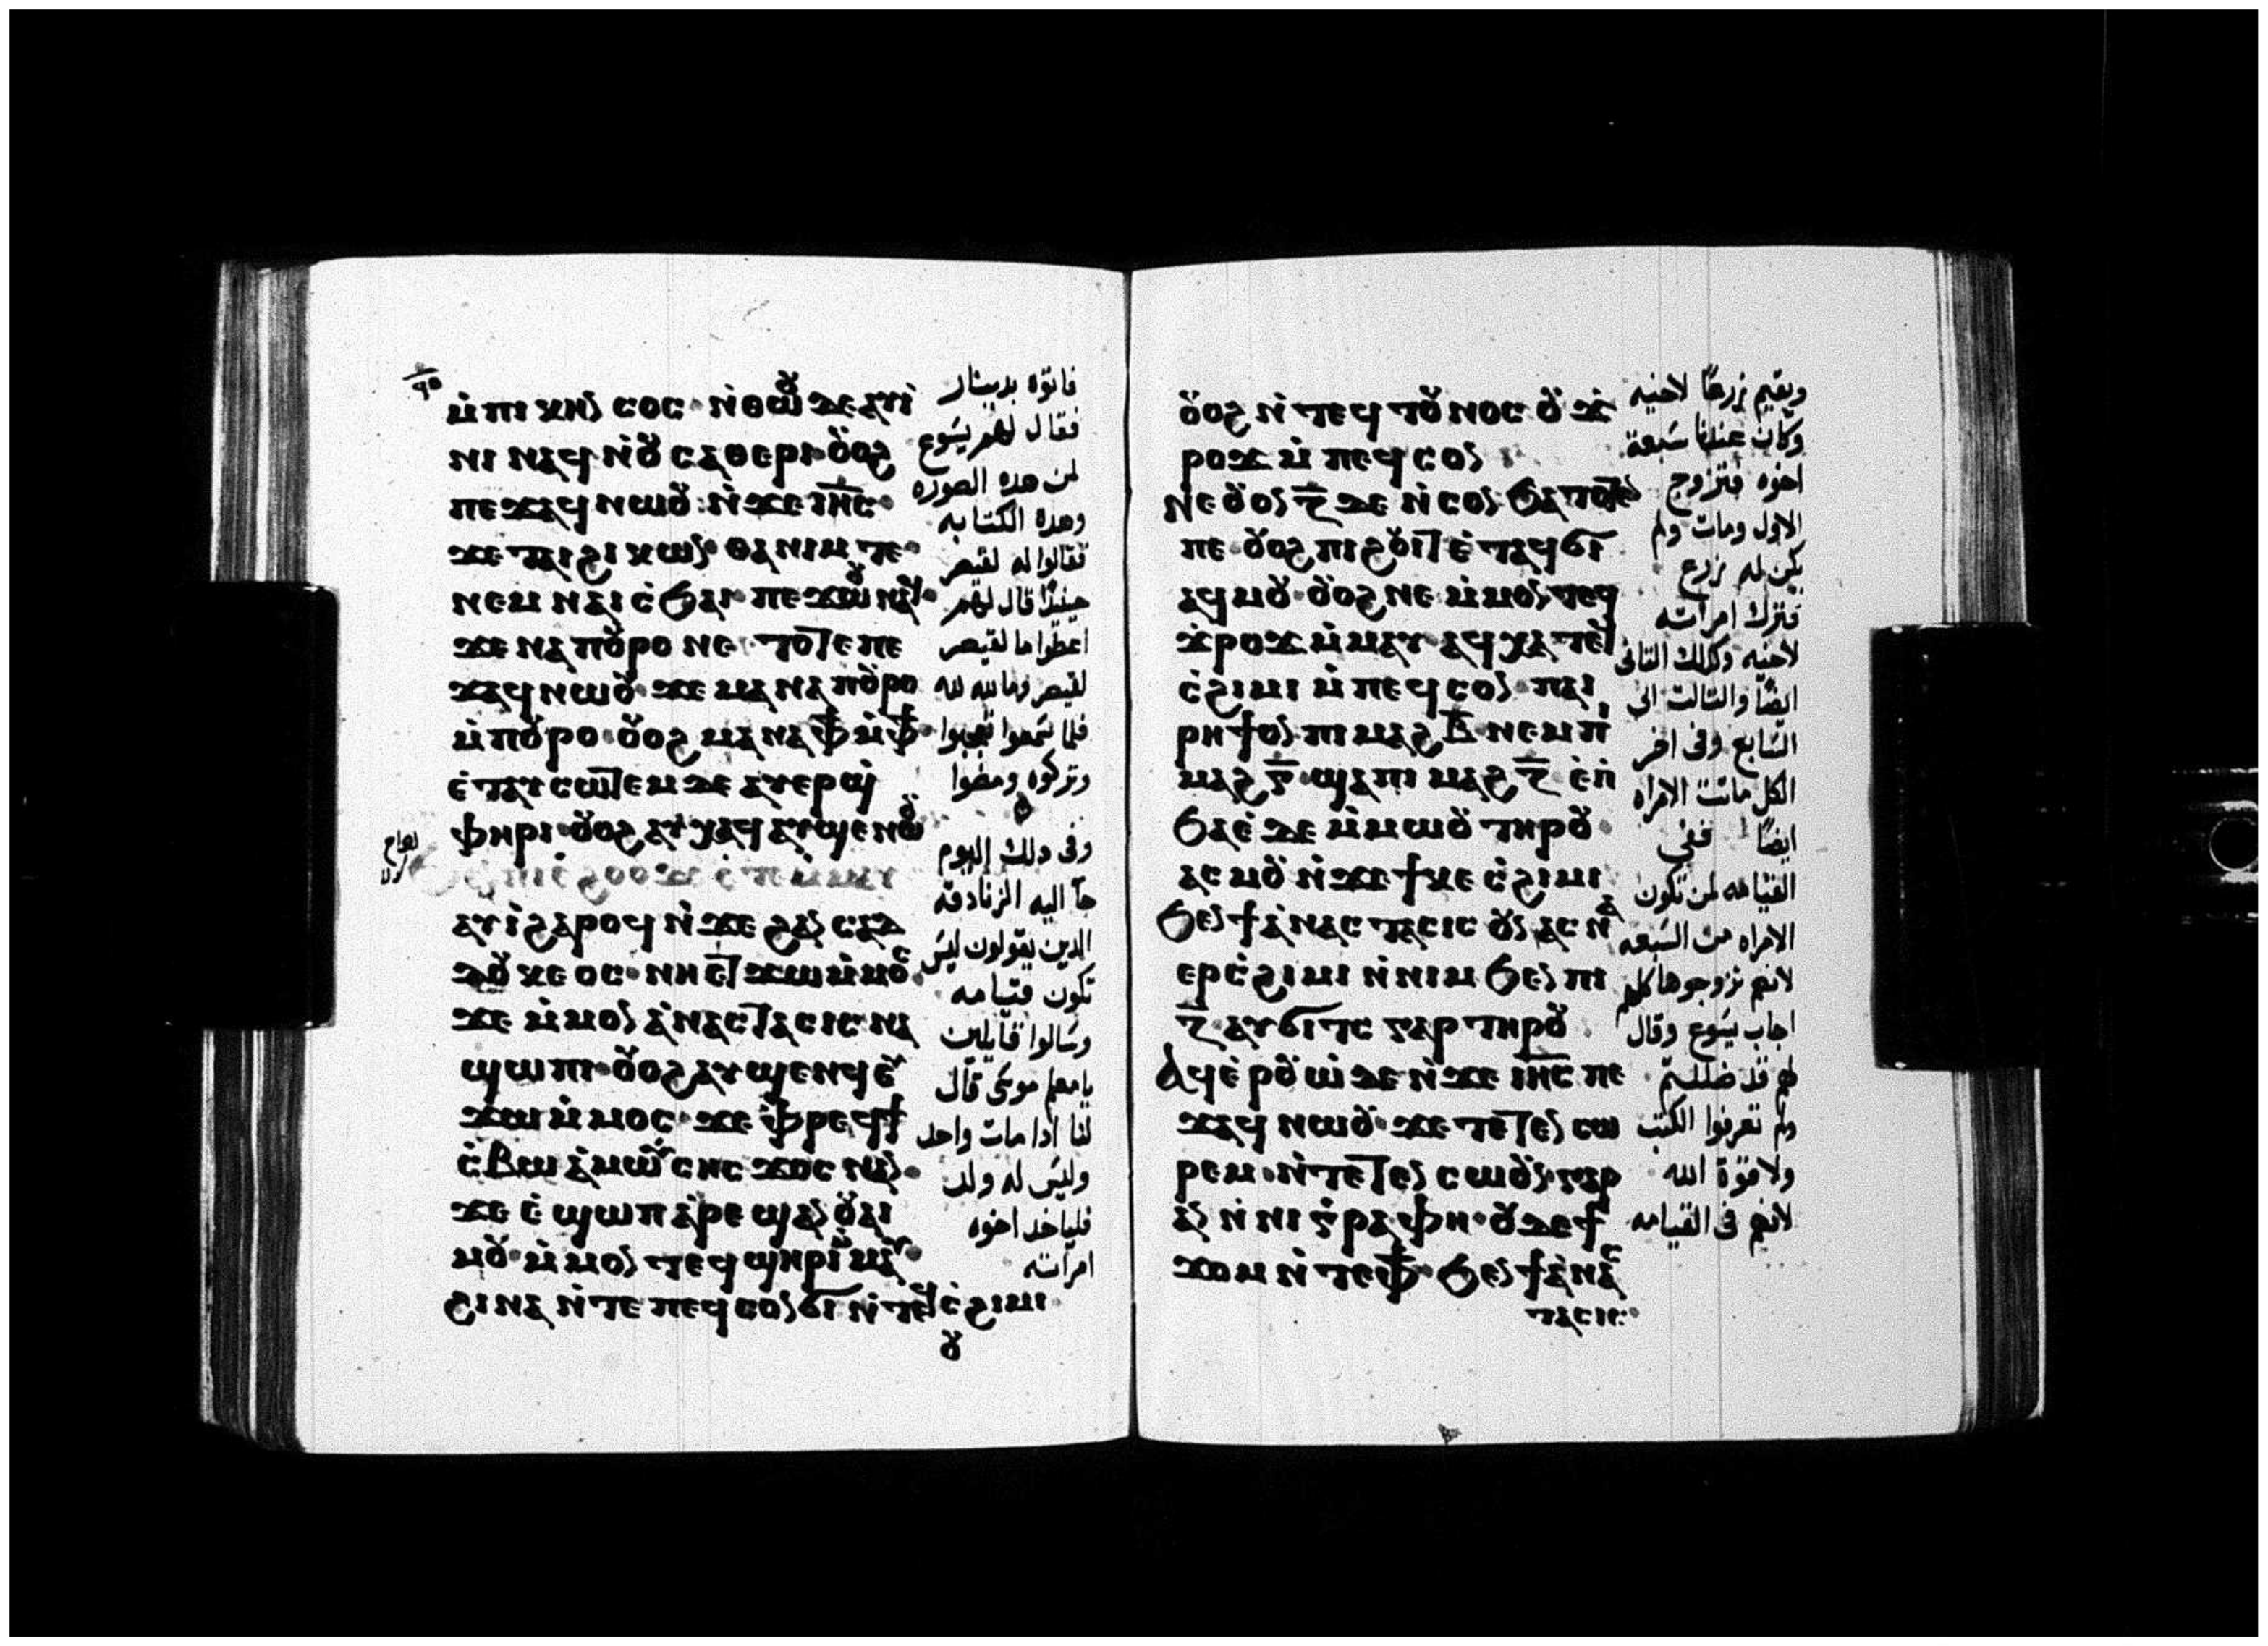 ⲙ̇ⲡⲓ ⲕⲏⲛ ⲥⲟⲥ· ⲛ̇ⲑⲱⲟⲩ ⲇⲉ ⲁⲩⲓ̇
ⲛⲓ ⲛⲁϥ ⲛ̇ⲟⲩ ⲥⲁⲑⲉⲣⲓ· ⲟⲩⲟϩ
ⲡⲉϫⲁϥ ⲛⲱⲟⲩ: ⲛ̇ϫⲉ ⲓⲏⲥ·
ϫⲉ ⲧⲁⲓ ϩⲓ ⲕⲱⲛ· ⲑⲁ ⲛⲓⲙ ⲧⲉ·
ⲛⲉⲙ ⲛⲁⲓ ⲥ̇ϧⲁⲓ· ⲡⲉϫⲱⲟⲩ ⲛⲁϥ·
ϫⲉ ⲛⲁ ⲡⲟⲩⲣⲟ ⲛⲉ· ⲧⲟⲧⲉ ⲡⲉ
ϫⲁϥ ⲛⲱⲟⲩ· ϫⲉ ⲙⲁ ⲛⲁ ⲡⲟⲩⲣⲟ
ⲙ̇ⲡⲟⲩⲣⲟ· ⲟⲩⲟϩ ⲙⲁ ⲛⲁ ⲫϯ ⲙ̇ⲫϯ·
ⲉ̇ⲧⲁⲩ ⲥⲱⲧⲉⲙ ⲇⲉ ⲁⲩⲉⲣ ϣ̇
ⲫⲏⲣⲓ· ⲟⲩⲟϩ ⲁⲩ ⲭⲁϥ ⲁⲩϣⲉ ⲛⲱⲟⲩ
ⲁⲩⲓ̇ ϩⲁⲣⲟϥ ⲛ̇ϫⲉ ϩⲁⲛ ⲥⲁⲇ
ⲇⲟⲩ ⲕⲉ ⲟⲥ· ⲛⲏ ⲉⲧ ϫⲱ ⲙ̇ⲙⲟⲥ·
ϫⲉ ⲙ̇ⲙⲟⲛ ⲁ̇ⲛⲁⲥⲧⲁⲥⲓⲥ ⲛⲁ
ϣⲱⲡⲓ· ⲟⲩⲟϩ ⲁⲩ ϣⲉⲛϥ ⲉⲩ
ϫⲱ ⲙ̇ⲙⲟⲥ· ϫⲉ ⲫ̇ⲣⲉϥϯ
ⲥ̇ⲃⲱ ⲁ̇ ⲙⲱⲩ̈ ⲥⲏⲥ ϫⲟⲥ ⲛⲁⲛ·
ϫⲉ ⲉ̇ϣⲱⲡ ⲁ̇ⲣⲉ ϣⲁⲛ ⲟⲩⲁⲓ
ⲙⲟⲩ· ⲙ̇ⲙⲟⲛ ⲧⲉϥ ϣⲏⲣⲓ ⲙ̇ⲙⲁⲩ·
ϩⲓⲛⲁ ⲛ̇ⲧⲉ ⲡⲉϥ ⲥⲟⲛ ϭⲓ ⲛ̇ⲧⲉϥ ⲥ̇ϩⲓⲙⲓ·
ⲟⲩ
فاتوه بدينار
فقال لهم يسوع
لمن هده الصوره
وهده الكتابه
فقالوا له لقيصر
حينيذا قال لهم
اعطوا ما لقيصر
لقيصر وما لله لله
فلما سمعوا تعجبوا
وتركوه ومضوا
وفى دلك اليوم
جآ اليه الزنادقه
الدين يقولون ليس
تكون قيامه
وسالوا قآيلين
يا معلم موسى قال
لنا ادا مات واحد
وليس له ولد
فلياخد اخوه
امراته
ⲟⲩⲟϩ ⲛ̇ⲧⲉϥ ⲧⲟⲩⲛⲟⲥ ⲟⲩ ϫ̇
ⲣⲟϫ ⲙ̇ⲡⲉϥ ⲥⲟⲛ
ⲛⲉ ⲟⲩⲟⲛ ⲍ̅ ⲇⲉ ⲛ̇ⲥⲟⲛ ϧⲁⲧⲟⲧⲉⲛ
ⲡⲉ· ⲟⲩⲟϩ ⲡⲓ ϩⲟⲩⲓⲧ ⲉ̇ⲧⲁϥϭⲓ
ⲁϥⲙⲟⲩ· ⲟⲩⲟϩ ⲛⲉ ⲙ̇ⲙⲟⲛ ⲧⲉϥ
ϫ̇ⲣⲟϫ ⲙ̇ⲙⲁⲩ ⲁϥ ⲭⲁ ⲧⲉϥ
ⲥ̇ϩⲓⲙⲓ ⲙ̇ⲡⲉϥ ⲥⲟⲛ· ⲡⲁⲓ
ⲣⲏϯ ⲟⲛ ⲡⲓ ⲙⲁϩ ⲃ̅· ⲛⲉⲙ ⲡⲓ
ⲙⲁϩ ⲅ̅· ϣⲁ ⲡⲓ ⲙⲁϩ ⲍ̅ ⲉ̇ⲡ̇
ϧⲁⲉ̇ ⲇⲉ ⲙ̇ⲙⲱⲟⲩ ⲧⲏⲣⲟⲩ·
ⲁⲥ ⲙⲟⲩ ⲛ̇ϫⲉ ϯ ⲕⲉ ⲥ̇ϩⲓⲙⲓ
ϧⲉⲛ ϯ ⲁ̇ⲛⲁⲥⲧⲁⲥⲓⲥ ⲟⲩⲛ ⲁⲥ ⲛⲁ
ⲉⲣ ⲥ̇ϩⲓⲙⲓ ⲛ̇ⲛⲓⲙ ϧⲉⲛ ⲡⲓ
ⲍ̅ ⲁⲩϭⲓⲧⲥ ⲅⲁⲣ ⲧⲏⲣⲟⲩ
ⲁϥⲉ̇ⲣⲟⲩⲱ̇ ⲇⲉ ⲛ̇ϫⲉ ⲓⲏⲥ ⲡⲉ
ϫⲁϥ ⲛⲱⲟⲩ· ϫⲉ ⲧⲉⲧⲉⲛ ⲥⲱ
ⲣⲉⲙ· ⲛ̇ⲧⲉⲧⲉⲛ ⲥⲱⲟⲩⲛ ⲅⲁⲣ
ⲁⲛ ⲛ̇ⲛⲓ ⲅ̇ⲣⲁⲫⲏ· ⲟⲩⲇⲉ ϯ
ϫⲟⲙ ⲛ̇ⲧⲉ ⲫϯ· ϧⲉⲛ ϯ ⲁ̇ⲛⲁⲥ
ⲧⲁⲥⲓⲥ·
ويقيم زرعًا لاخيه
وكان عندنا سبعة
اخوه فتزوج
الاول ومات ولم
يكن له زرع
فترك امراته
لاخيه وكدلك التانى
ايضًا والتالت الى
السابع وفى اخر
الكل ماتت الامراه
ايضًا ففى
القيامه لمن تكون
الامراه من السبعه
لانهم تزوجوها كلهم
اجاب يسوع وقال
لهم قد ضللتم
ولم تعرفوا الكتب
ولا قوة الله
لانهم فى القيامه